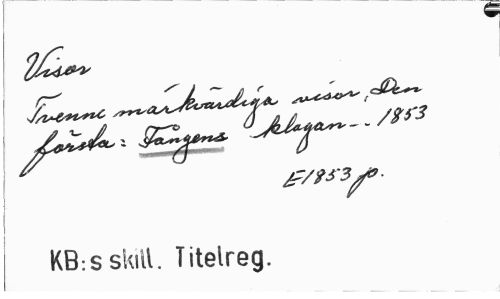 Visor
Tvenne märkvärdiga visor, Den
första: Fångens klagan-.. 1853
E1853 p.
KB:s skill. Titelreg.